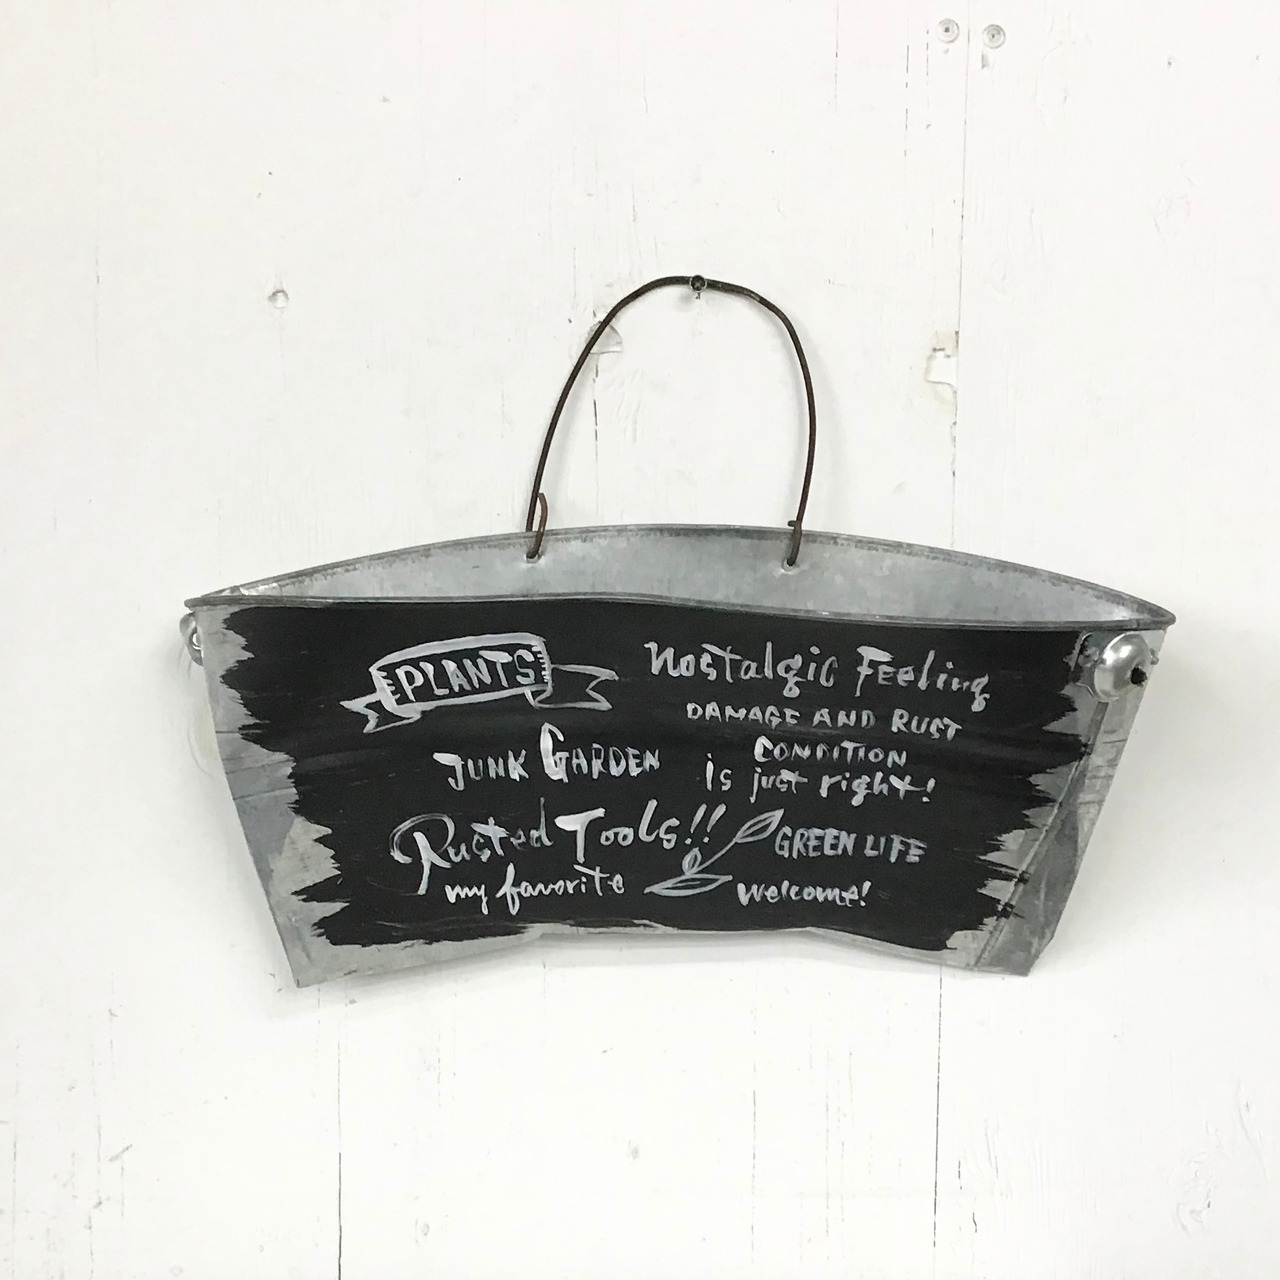 PLANTS
JUNK GARDEN
Rusted Tools!!
my favorite
Nostalgic Feeling
DAMAGE AND RUST
CONDITION
is just right!
GREEN LIFE
welcome!